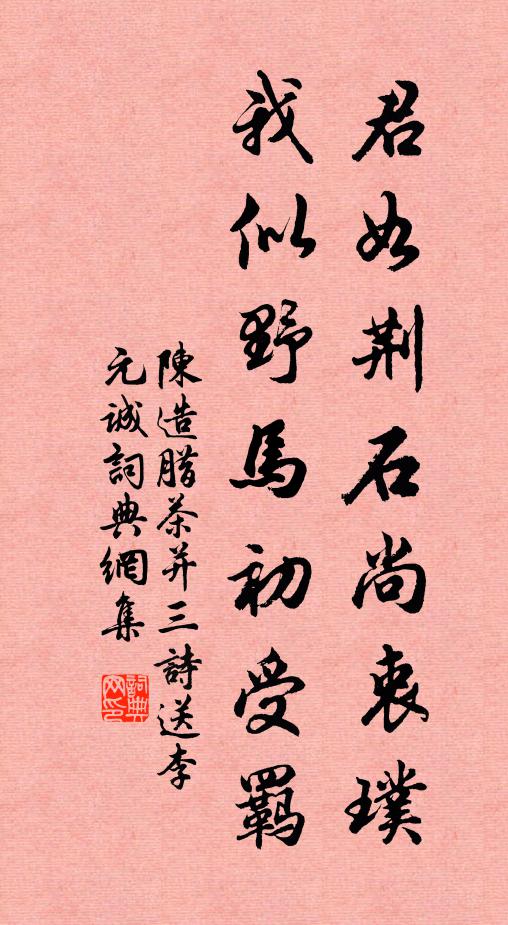 君如荆石尚衷璞
我似野馬初受羈
陳造腊茶并三詩送李
元誠詞典網集
詞典網印